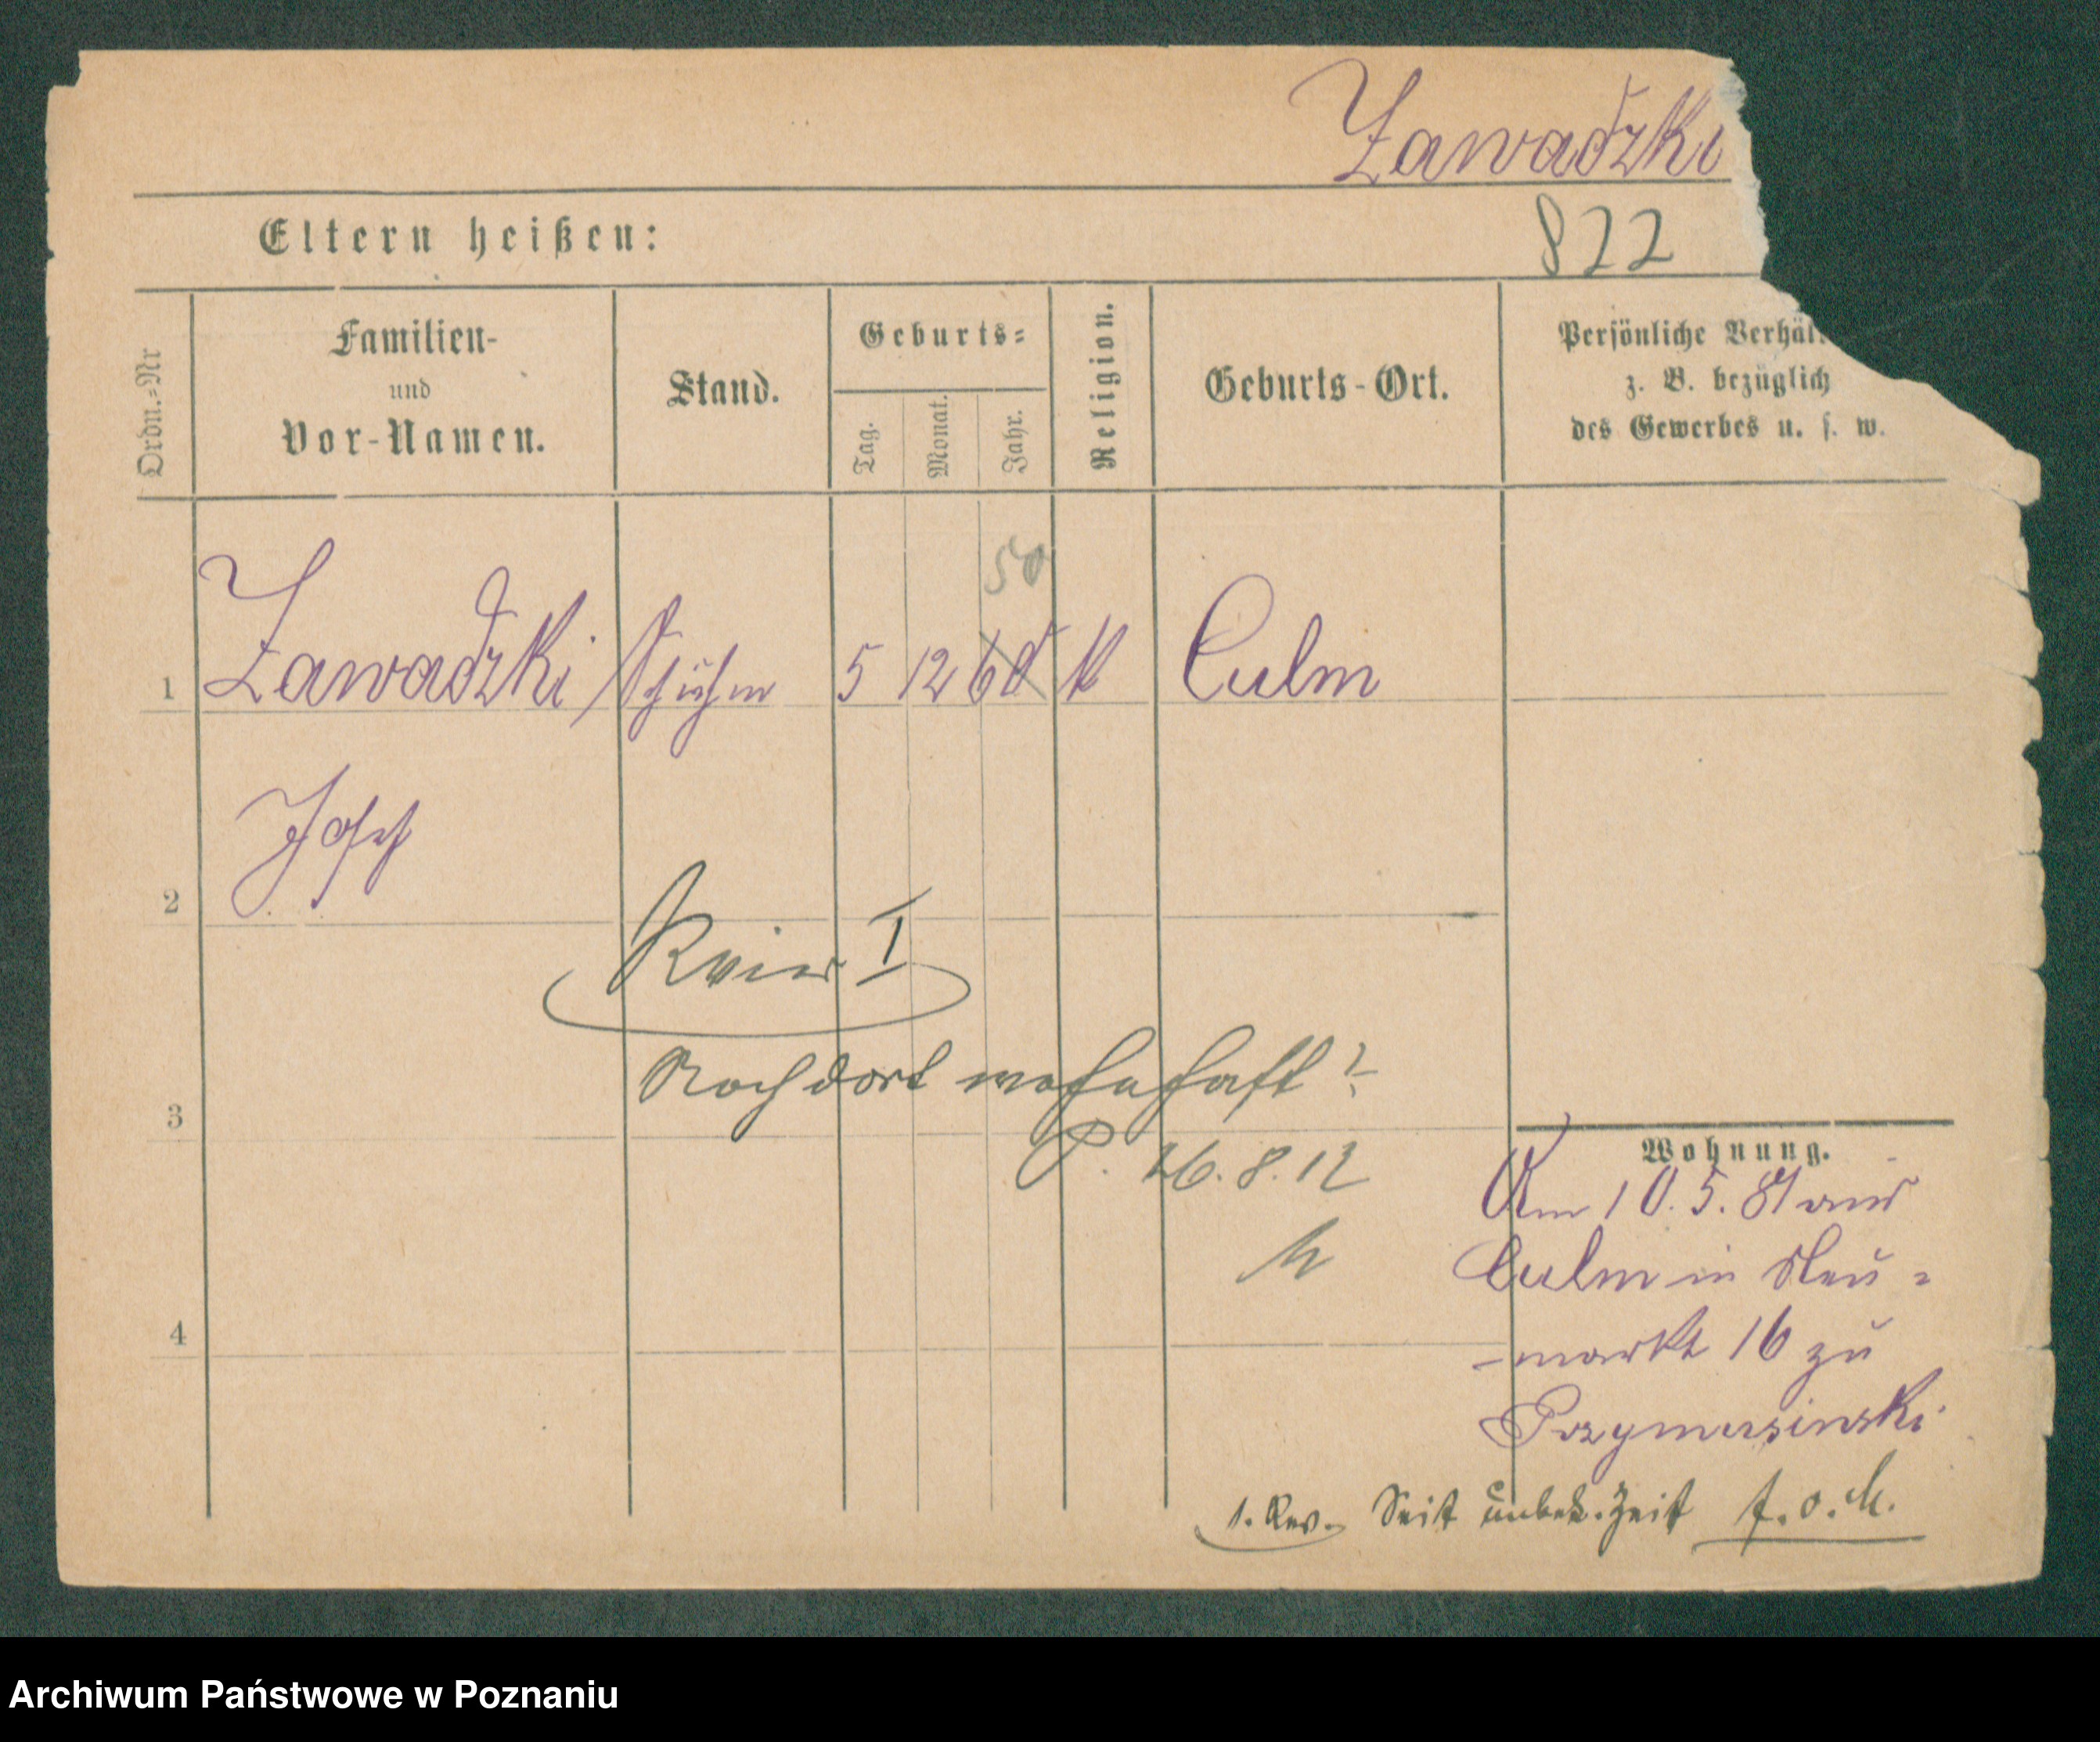 Zawadzki
Eltern heißen:
822
Ordn.=Nr
Familien-
und
Vor-Namen.
Stand.
Geburts=
Tag.
Monat.
Jahr.
Religion.
Geburts-Ort.
Persönliche Verhäl
z. B. bezüglich
des Gewerbes u. s. w.
50
1 Zawadzki 5 12 60 k Culm
Josef
2
Revier I
3 Noch dort wohnhaft?
P. 26.8.12
Wohnung.
Am 10.5.81 aus
Culm in Neu=
4
-markt 16 zu
Przymusinski
1. Rev. Seit unbek. Zeit f. o. M.
Archiwum Państwowe w Poznaniu